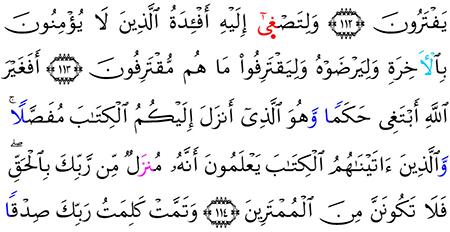 يَفْتَرُونَ ﴿١١٢﴾ وَلِتَصْغَىٰٓ إِلَيْهِ أَفْـِٔدَةُ ٱلَّذِينَ لَا يُؤْمِنُونَ
بِٱلْأَخِرَةِ وَلِيَرْضَوْهُ وَلِيَقْتَرِفُوا۟ مَا هُم مُّقْتَرِفُونَ ﴿١١٣﴾ أَفَغَيْرَ
ٱللَّهِ أَبْتَغِى حَكَمًا وَهُوَ ٱلَّذِىٓ أَنزَلَ إِلَيْكُمُ ٱلْكِتَـٰبَ مُفَصَّلًا ۚ
وَٱلَّذِينَ ءَاتَيْنَـٰهُمُ ٱلْكِتَـٰبَ يَعْلَمُونَ أَنَّهُۥ مُنزَلٌ مِّن رَّبِّكَ بِٱلْحَقِّ ۖ
فَلَا تَكُونَنَّ مِنَ ٱلْمُمْتَرِينَ ﴿١١٤﴾ وَتَمَّتْ كَلِمَتُ رَبِّكَ صِدْقًا